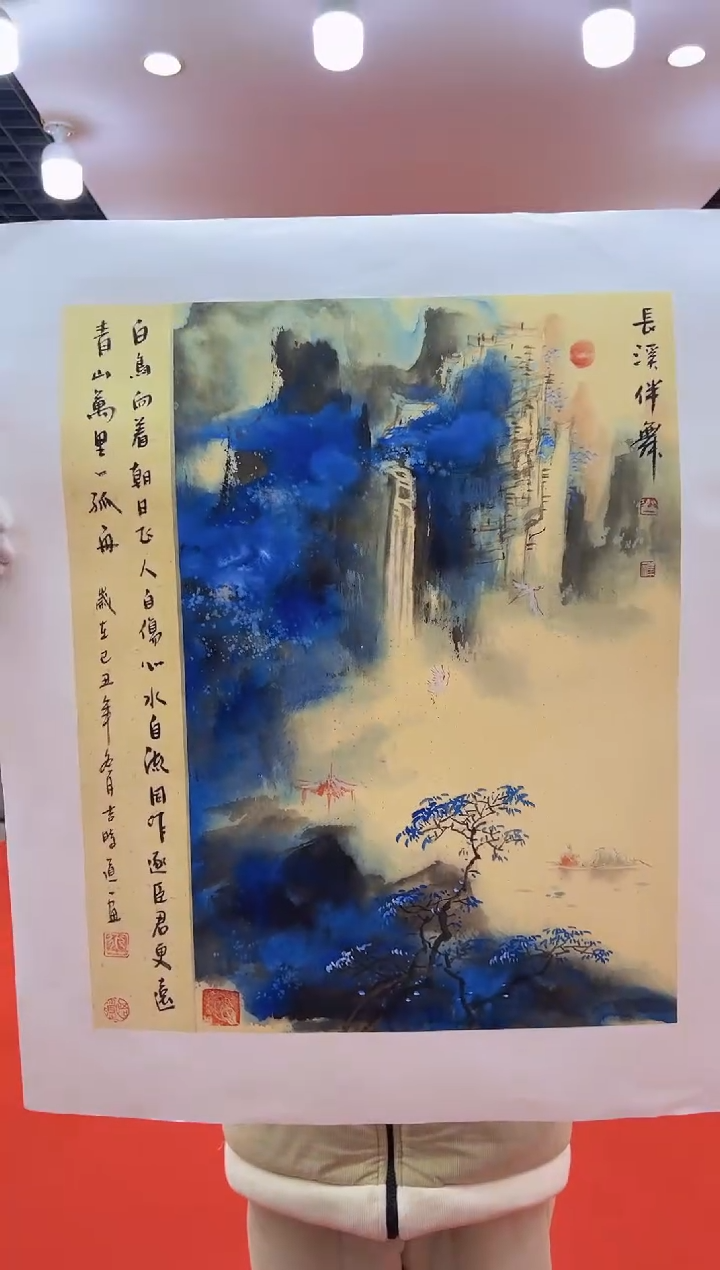 長溪伴舞
白鳥向着朝日飞人自傷心水自流同作逐臣君更遠
青山萬里一孤舟歲在己丑年冬月吉時道一畫